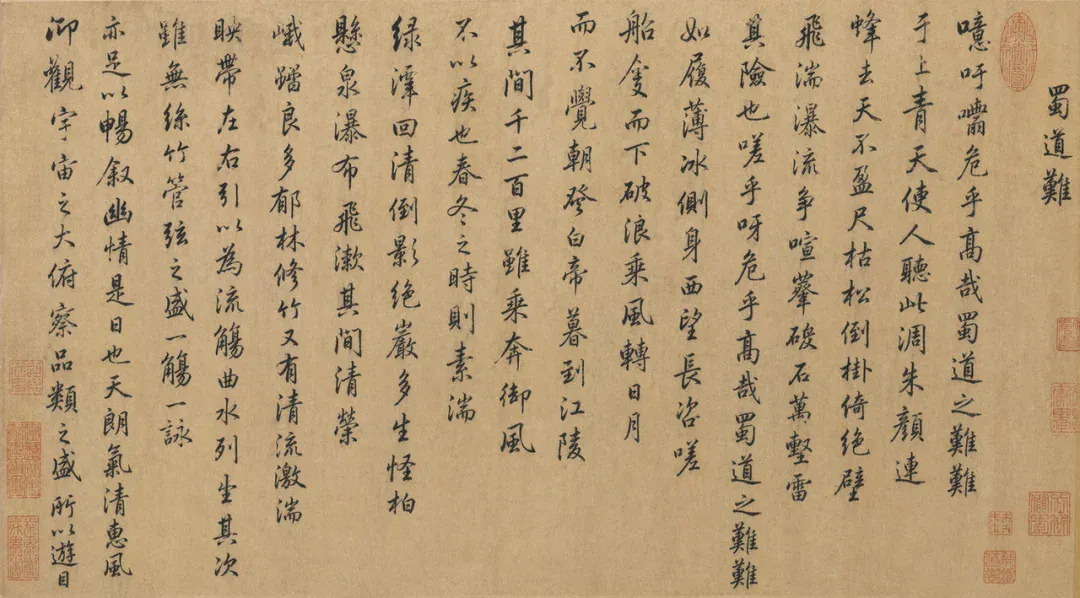 蜀道難
噫吁嚱危乎高哉蜀道之難難
于上青天使人聽此凋朱顏連
峰去天不盈尺枯松倒掛倚絕壁
飛湍瀑流爭喧豗砯石萬壑雷
其險也嗟乎呀危乎高哉蜀道之難難
如履薄冰側身西望長咨嗟
船夐而下破浪乘風轉日月
而不覺朝發白帝暮到江陵
其間千二百里雖乘奔御風
不以疾也春冬之時則素湍
绿潭回清倒影絶巖多生怪柏
懸泉瀑布飛漱其間清榮
峨躍良多郁林修竹又有清流激湍
映帶左右引以為流觴曲水列坐其次
雖無絲竹管弦之盛一觴一詠
亦足以暢叙幽情是日也天朗氣清惠風
仰觀宇宙之大俯察品類之盛所以遊目